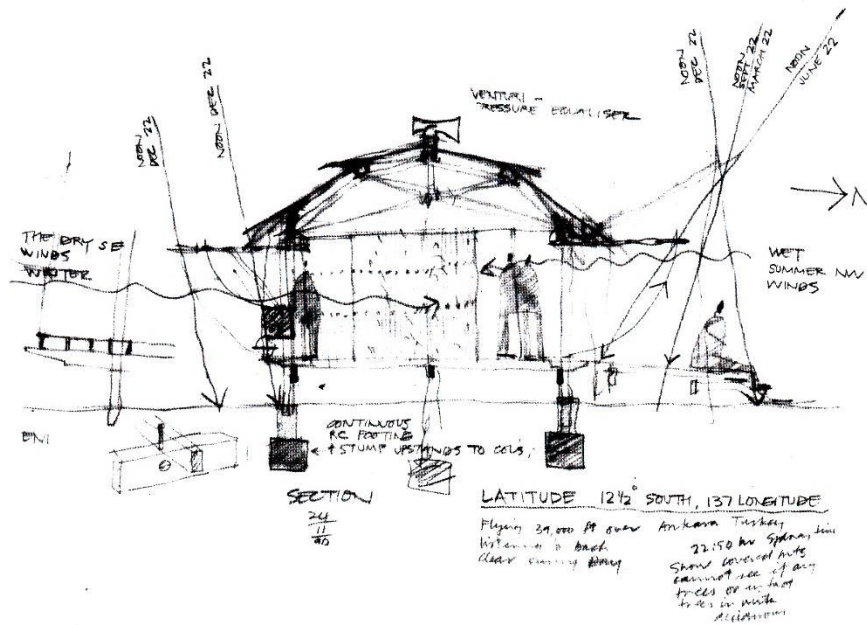 NOON
DEC 22
NOON DEC 22
VENTURI -
PRESSURE EQUALISER
NOON
DEC 22
NOON
SEPT 22
MARCH 22
NOON
JUNE 22
N
THE DRY SE
WINDS
WINTER
WET
SUMMER NW
WINDS
CONTINUOUS
RC FOOTING
+ STUMP UPSTANDS TO COLS,
SECTION
24
11
90
LATITUDE 12½° SOUTH, 137 LONGITUDE
Flying 39,000 ft over Ankara Turkey
listening to Bach
clear sunny
22:50 hr Sydney time
Snow covered
cannot see if any
trees or in fact
trees in